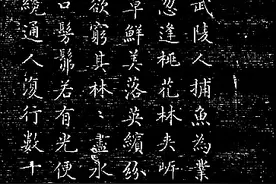 武陵人捕魚為業
忽逢桃花林夾岸
草鮮美落英繽紛
欲窮其林〻盡水
口髣髴若有光便
纔通人復行數十